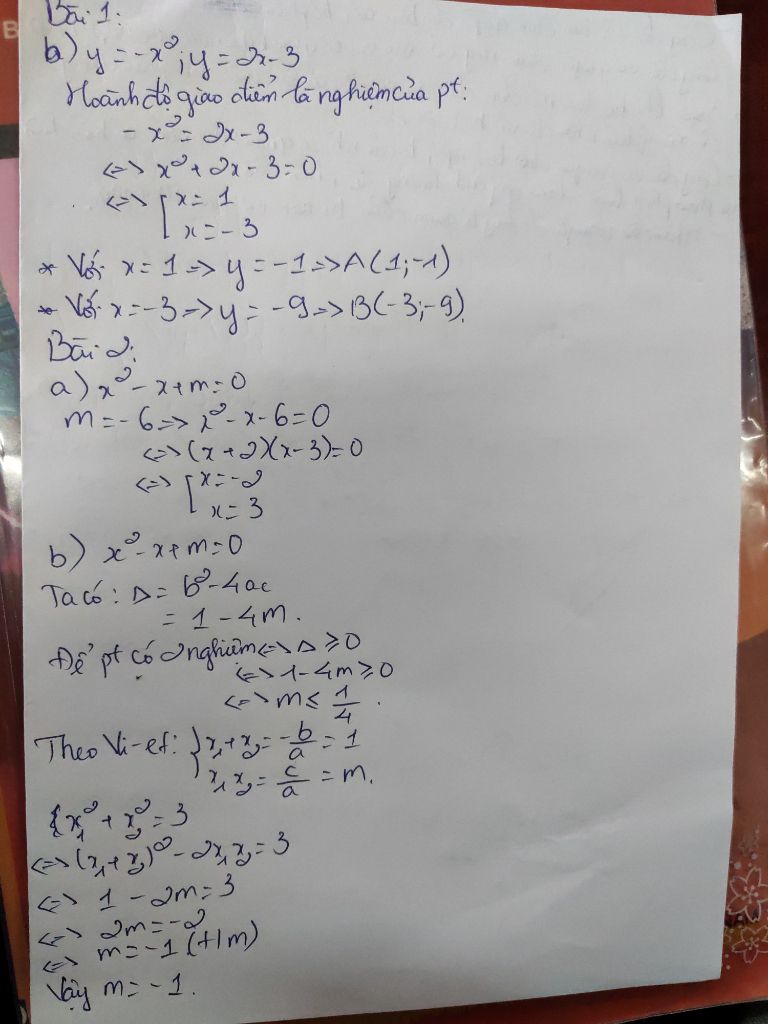 Bài 1:
b) y = -x²; y = 2x-3
Hoành độ giao điểm là nghiệm của pt:
- x² = 2x-3
<=> x² + 2x - 3 = 0
<=> [ x = 1
x = -3
* Với x = 1 => y = -1 => A(1;-1)
* Với x = -3 => y = -9 => B(-3;-9)
Bài 2:
a) x² - x + m = 0
m = -6 => x² - x - 6 = 0
<=> (x+2)(x-3) = 0
<=> [ x = -2
x = 3
b) x² - x + m = 0
Ta có: Δ = b² - 4ac
= 1 - 4m.
Để pt có 2 nghiệm <=> Δ ≥ 0
<=> 1 - 4m ≥ 0
<=> m ≤ 1/4.
Theo Vi-et: { x₁ + x₂ = -b/a = 1
x₁x₂ = c/a = m.
{x₁² + x₂² = 3
<=> (x₁ + x₂)² - 2x₁x₂ = 3
<=> 1 - 2m = 3
<=> 2m = -2
<=> m = -1 (t/m)
Vậy m = -1.